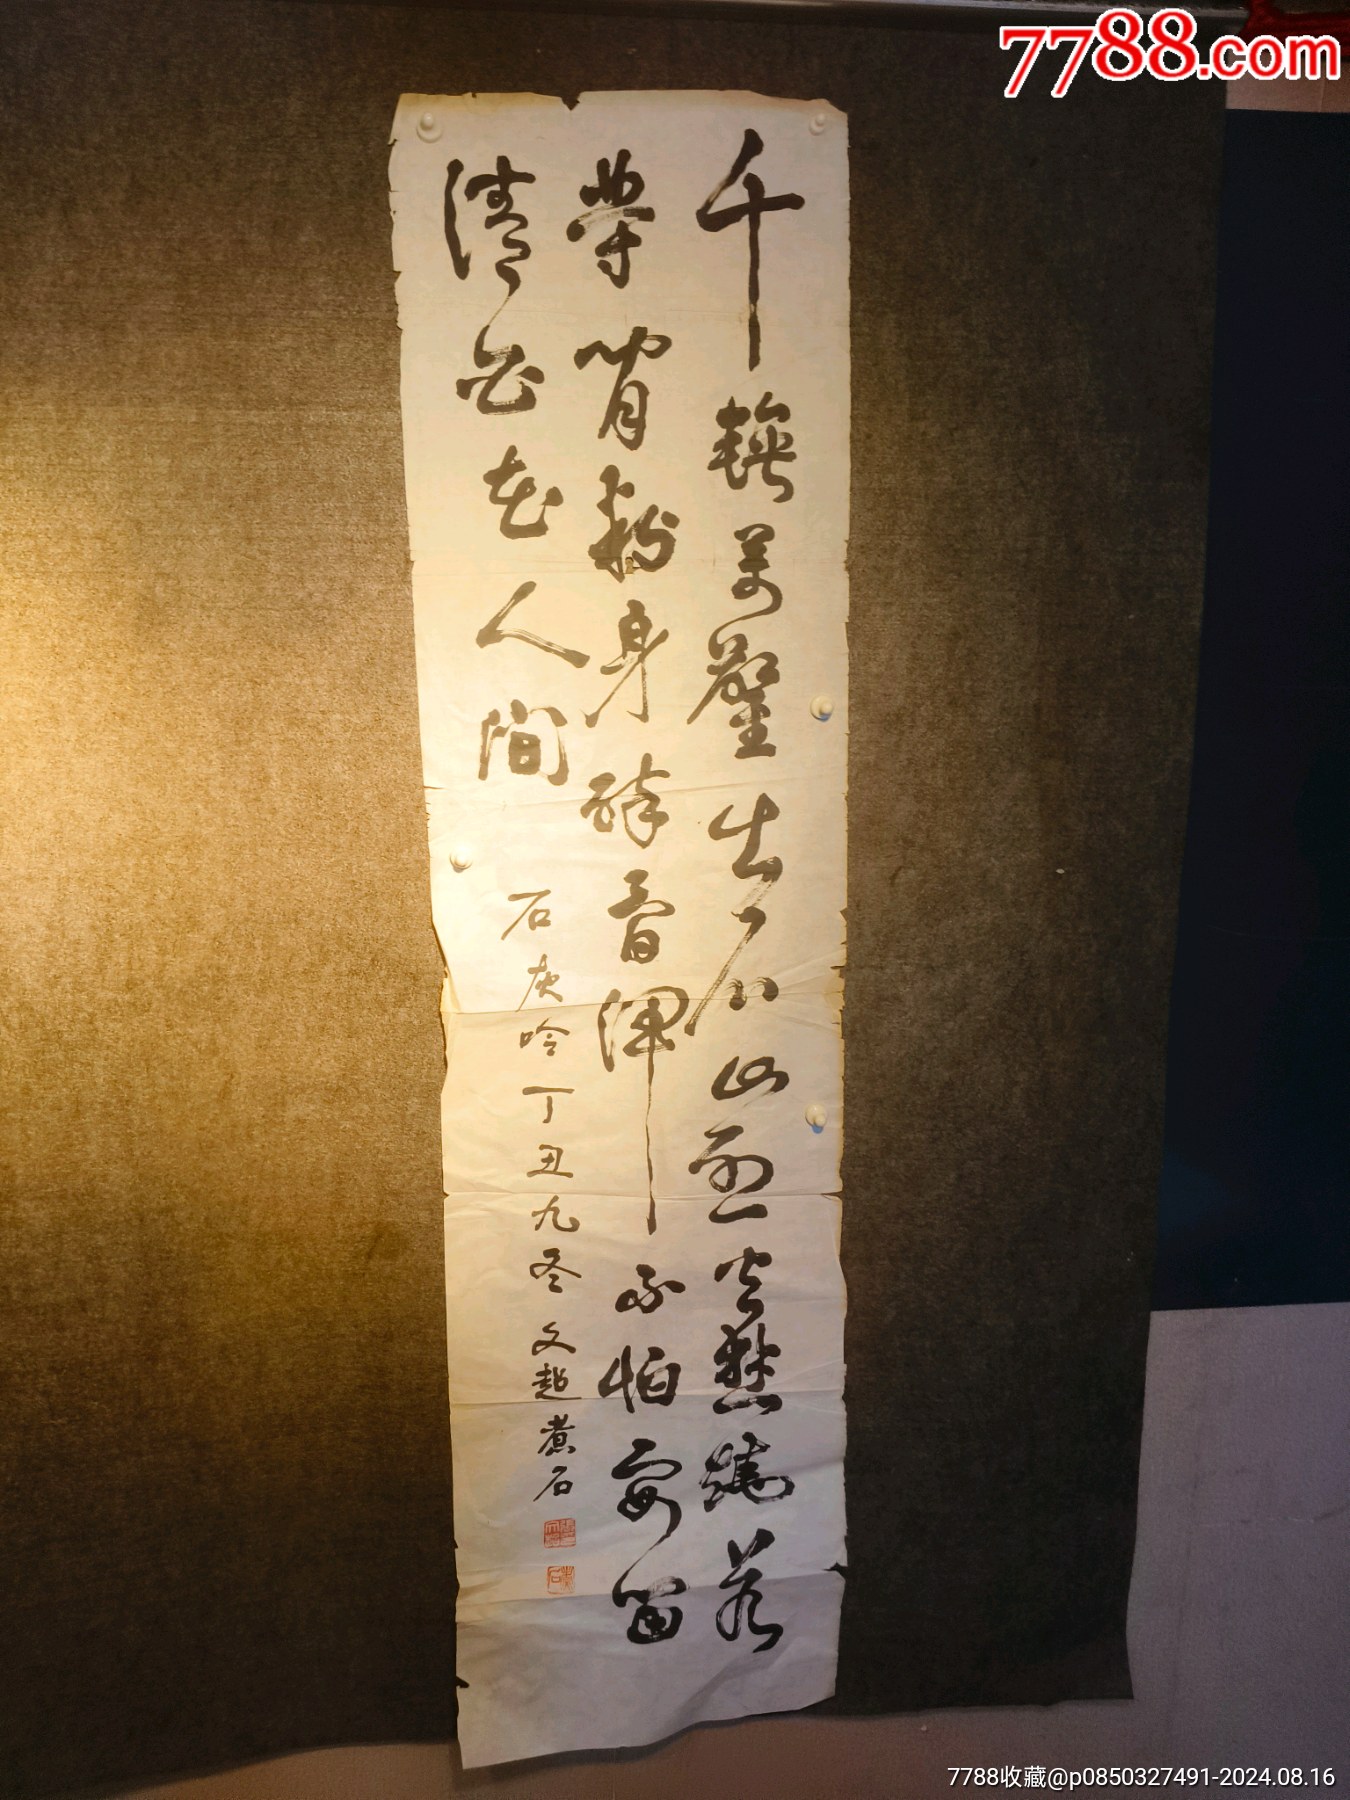 7788.com
千錘萬鑿出深山烈火焚燒若
等閒粉身碎骨渾不怕要留
清白在人間
石灰吟丁丑九冬文超煮石
7788收藏@p0850327491-2024.08.16